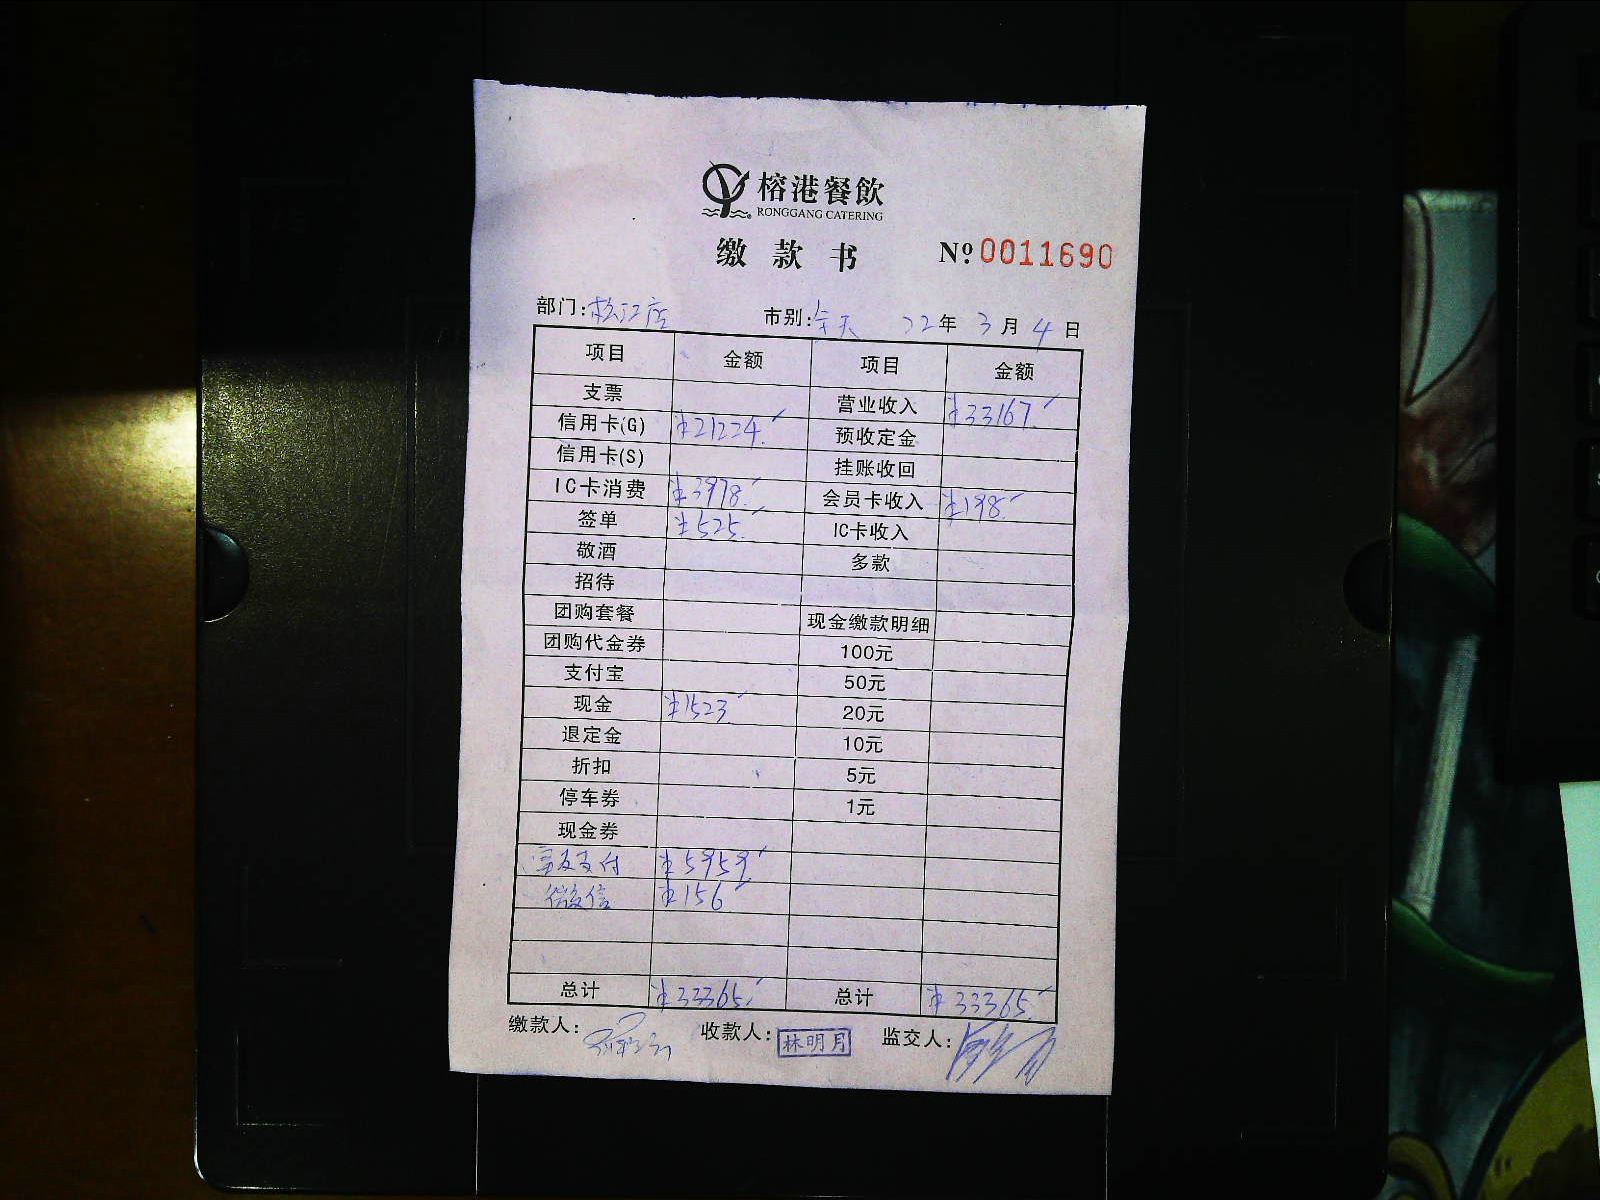 榕港餐飲
RONGGANG CATERING
缴款书 №:0011690
部门:松江店 市别:全天 22年3月4日
项目 金额 项目 金额
支票 营业收入 ¥33167.
信用卡(G) ¥21224. 预收定金
信用卡(S) 挂账收回
IC卡消费 ¥3978. 会员卡收入 ¥198.
签单 ¥525. IC卡收入
敬酒 多款
招待
团购套餐 现金缴款明细
团购代金券 100元
支付宝 50元
现金 ¥1523. 20元
退定金 10元
折扣 5元
停车券 1元
现金券
支付 ¥5959.
微信 ¥156
总计 ¥33365. 总计 ¥33365.
缴款人: 收款人:林明月 监交人: